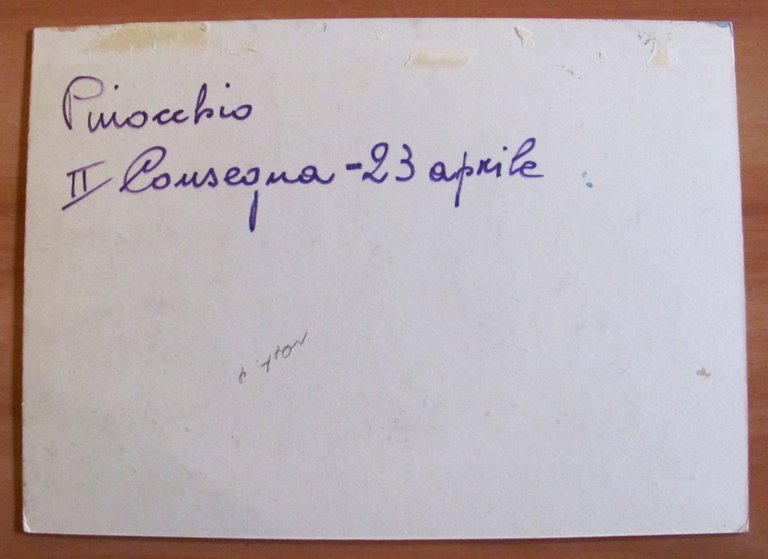 Pinocchio
II Consegna - 23 aprile